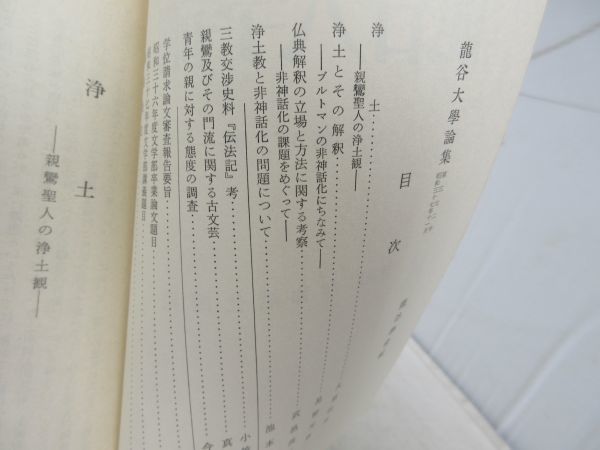 龍谷大學論集
目次
浄土
――親鸞聖人の浄土観――
浄土とその解釈
――ブルトマンの非神話化にちなみて――
仏典解釈の立場と方法に関する考察
――非神話化の課題をめぐって――
浄土教と非神話化の問題について
三教交渉史料『伝法記』考
親鸞及びその門流に関する古文芸
青年の親に対する態度の調査
学位請求論文審査報告要旨
昭和三十六年度文学部卒業論文題目
昭和三十七年度文学部講義題目
浄土
――親鸞聖人の浄土観――